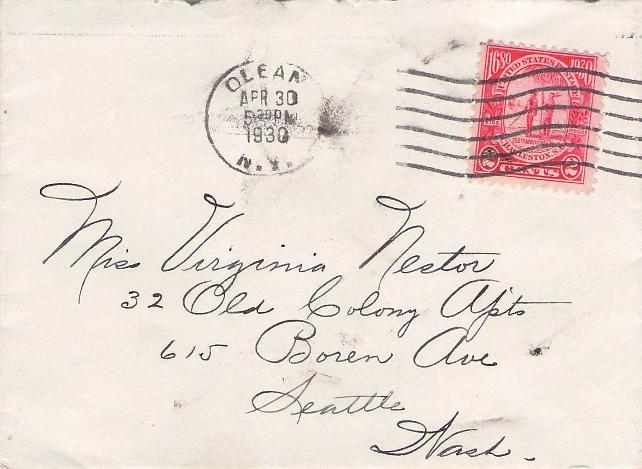 OLEAN
APR 30
5 30 PM
1930
N. Y.
1680 1930
UNITED STATES POSTAGE
CHARLESTON, S.C.
2 CENTS 2
Miss Virginia Nestor
32 Old Colony Apts
615 Boren Ave
Seattle
Wash.